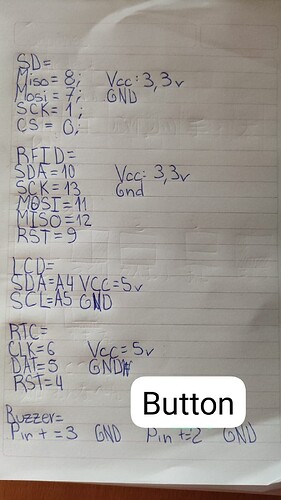 SD=
Miso = 8; Vcc: 3,3v
Mosi = 7; GND
SCK = 1;
CS = 0;
RFID=
SDA = 10 Vcc: 3,3v
SCK = 13 Gnd
MOSI = 11
MISO = 12
RST = 9
LCD=
SDA=A4 VCC=5v
SCL=A5 GND
RTC=
CLK=6 Vcc=5v
DAT=5 GND
RST=4
Button
Buzzer=
Pin + = 3 GND Pin +=2 GND